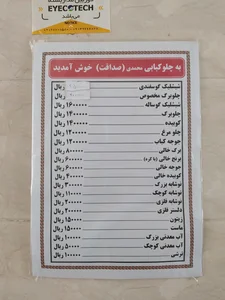 دوربین مداربسته
EYECOTECH
می‌باشد
به چلوکبابی محمدی (صداقت) خوش آمدید
شیشلیک گوسفندی ریال
چلوبرگ مخصوص ریال
شیشلیک گوساله ۱۶۰۰۰۰۰ ریال
چلوبرگ ۱۴۰۰۰۰۰ ریال
کوبیده ۱۴۰۰۰۰۰ ریال
چلو مرغ ۱۴۰۰۰۰۰ ریال
جوجه کباب ۱۲۰۰۰۰۰ ریال
برگ خالی ۸۰۰۰۰۰ ریال
برنج خالی (با کره) ۶۰۰۰۰۰ ریال
جوجه خالی ۶۰۰۰۰۰ ریال
کوبیده خالی ۴۰۰۰۰۰ ریال
نوشابه بزرگ ۳۰۰۰۰۰ ریال
نوشابه کوچک ریال
نوشابه فلزی ۲۰۰۰۰۰ ریال
دلستر فلزی ۲۰۰۰۰۰ ریال
زیتون ۱۵۰۰۰۰ ریال
ماست ۱۵۰۰۰۰ ریال
آب معدنی بزرگ ۱۰۰۰۰۰ ریال
آب معدنی کوچک ۵۰۰۰۰ ریال
ترشی ۱۰۰۰۰۰ ریال